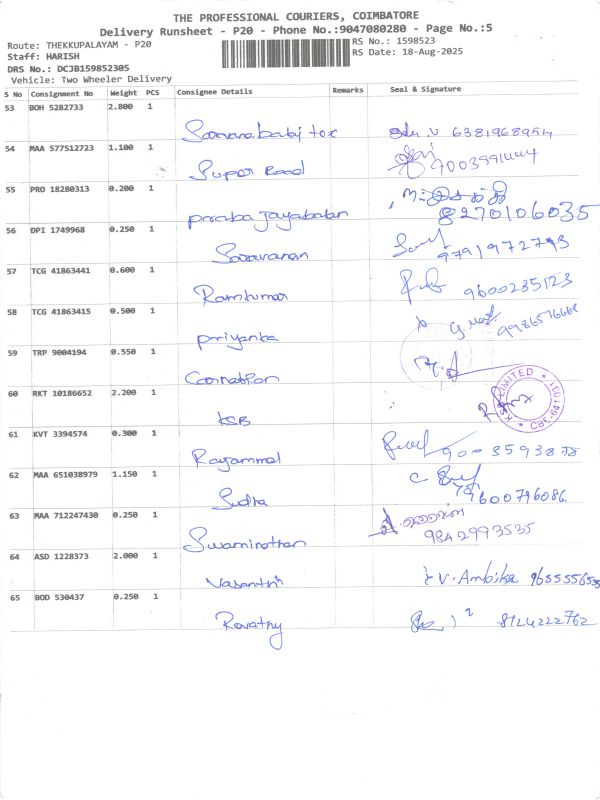 THE PROFESSIONAL COURIERS, COIMBATORE
Delivery Runsheet - P20 - Phone No.:9047080280 - Page No.:5
Route: THEKKUPALAYAM - P20
RS No.: 1598523
Staff: HARISH
RS Date: 18-Aug-2025
DRS No.: DCJB159852305
Vehicle: Two Wheeler Delivery
S No Consignment No Weight PCS Consignee Details Remarks Seal & Signature
53 BOH 5282733 2.800 1
6381968954
54 MAA 577512723 1.100 1
Super Road
55 PRO 18280313 0.200 1
8270106035
56 DPI 1749968 0.250 1
Saravanan 9791972793
57 TCG 41863441 0.600 1
Ramkumar 9600235123
58 TCG 41863415 0.500 1
priyanka
59 TRP 9004194 0.550 1
60 RKT 10186652 2.200 1
KSB
LIMITED
61 KVT 3394574 0.300 1
Rayammal
62 MAA 651038979 1.150 1
Sudha 9600796086
63 MAA 712247430 0.250 1
Swaminathan 9842993535
64 ASD 1228373 2.000 1
Vasanthi V. Ambika
65 BOD 530437 0.250 1
Revathy 8124222762